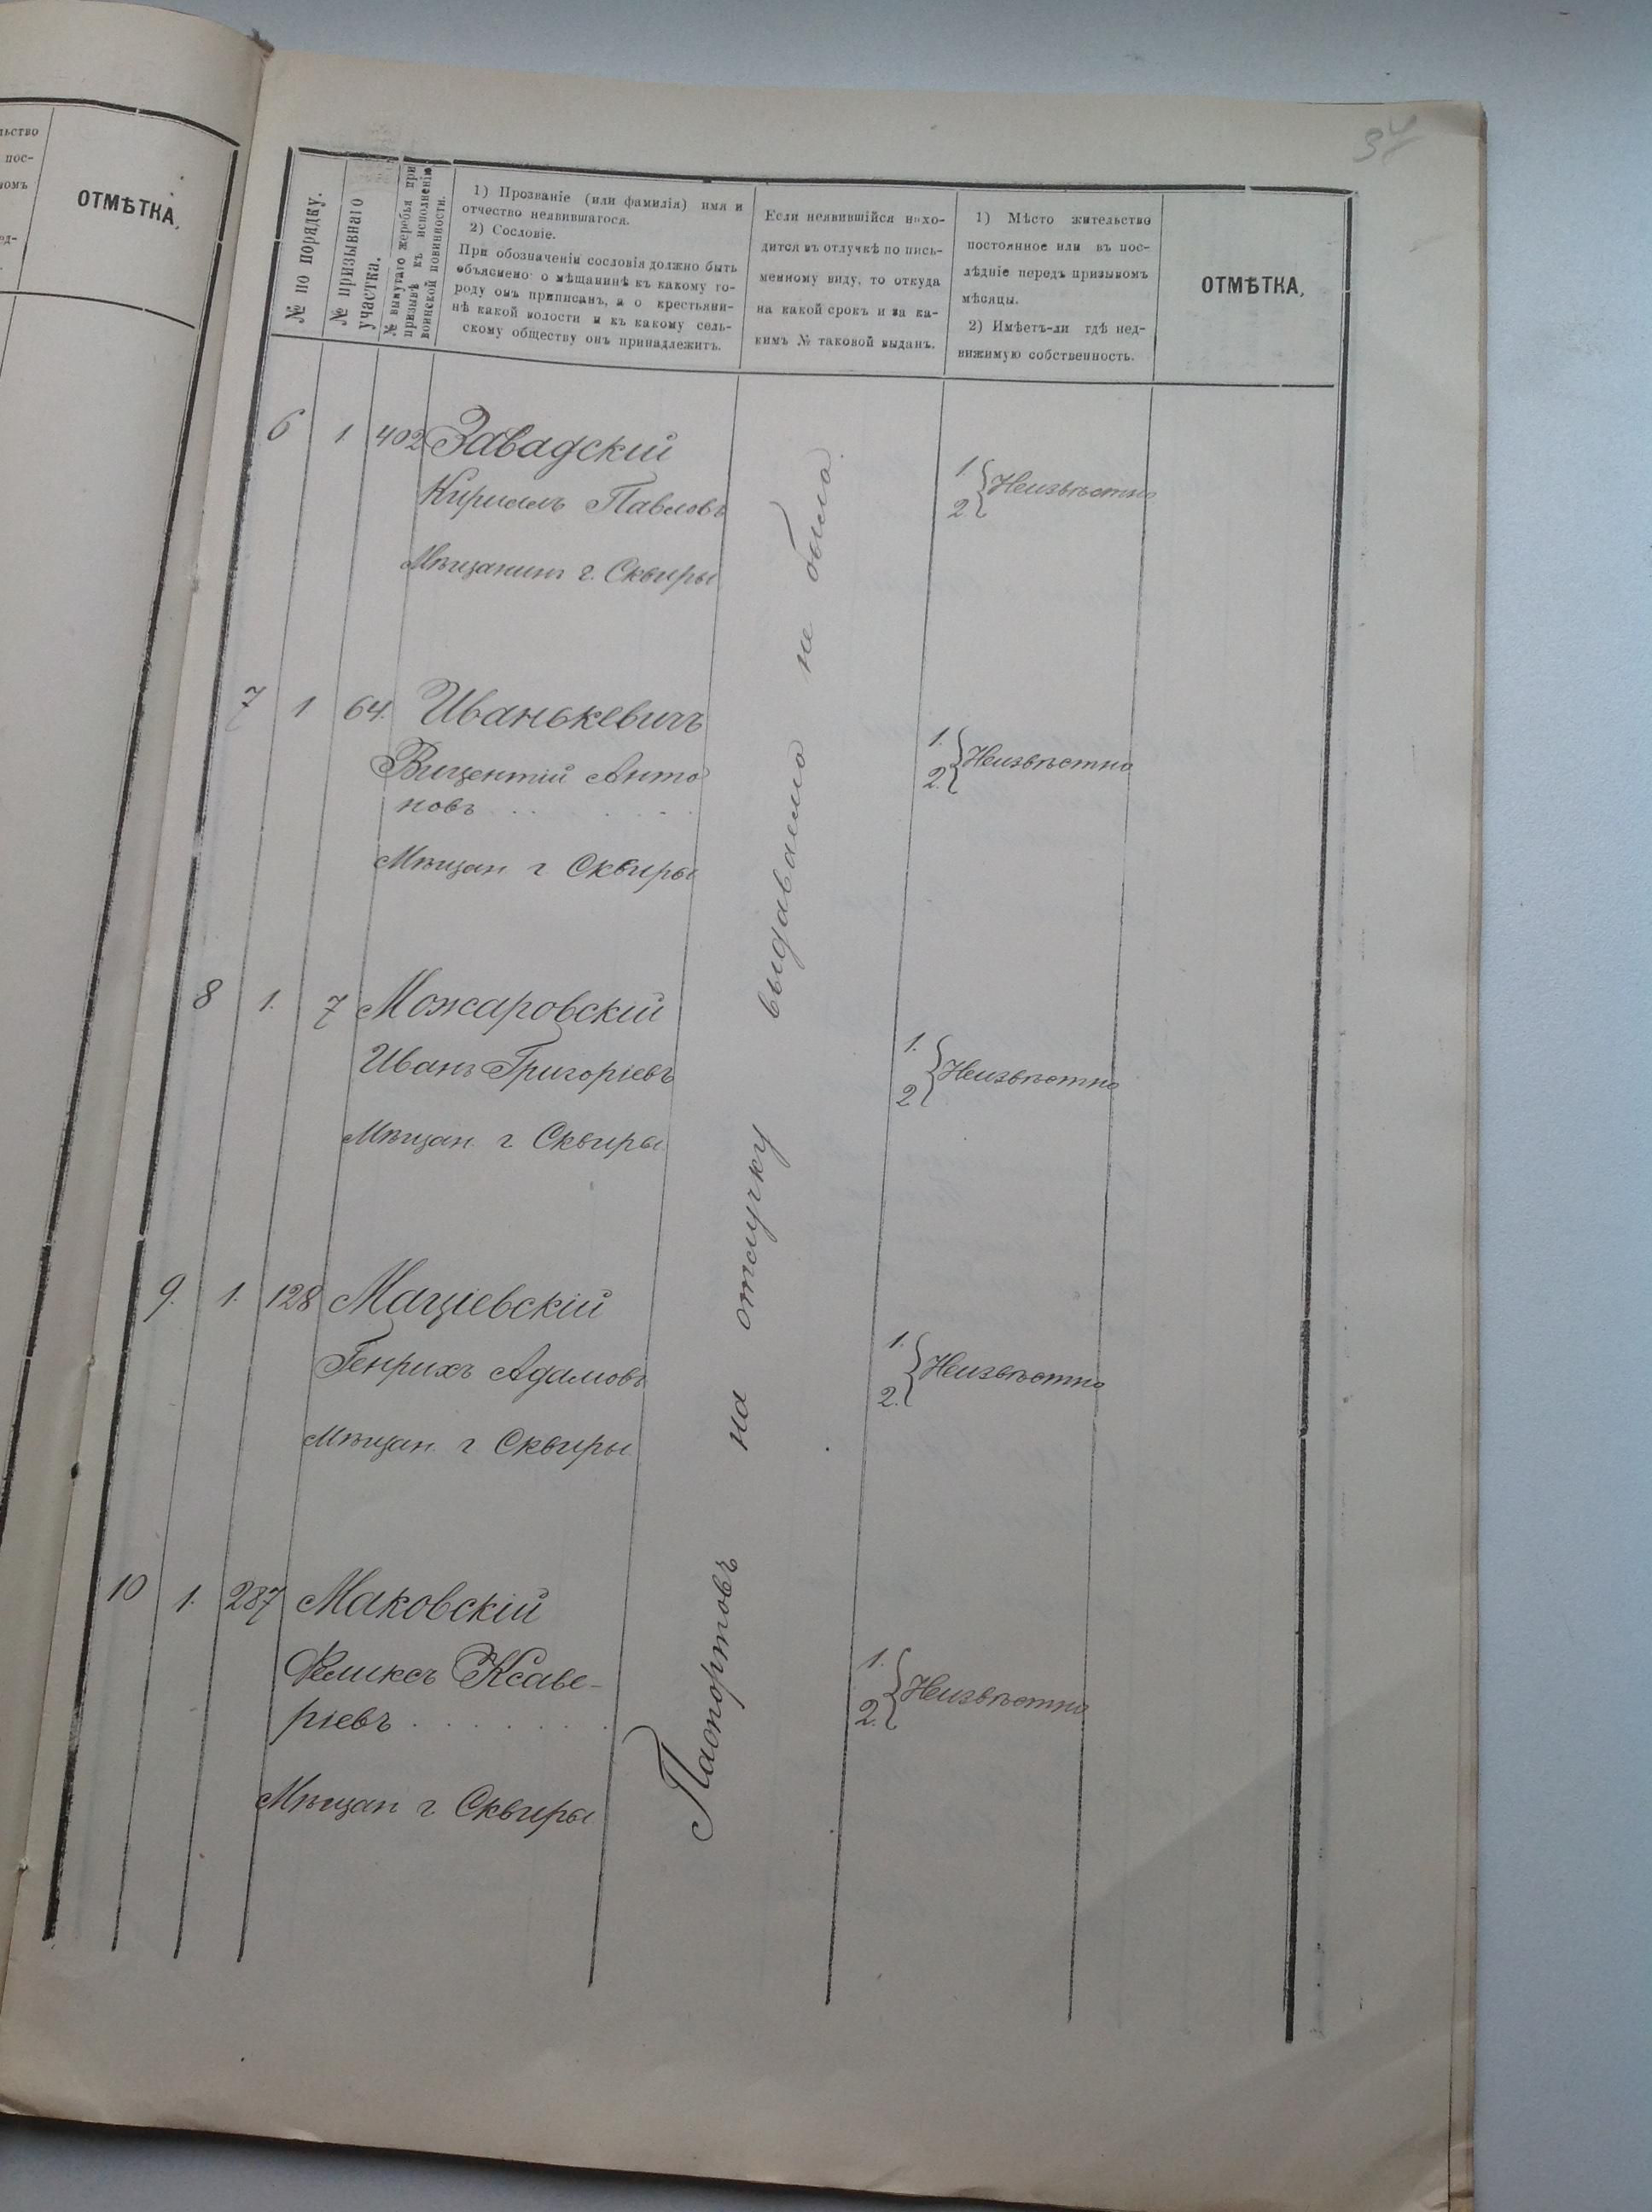 льство
пос-
номъ
ед-
ОТМѢТКА.
34
№ по порядку.
№ призывнаго
участка.
№ вынутаго жеребья при
призывѣ къ исполненію
воинской повинности.
1) Прозваніе (или фамилія) имя и
отчество неявившагося.
2) Сословіе.
При обозначеніи сословія должно быть
объяснено: о мѣщанинѣ къ какому го-
роду онъ приписанъ, а о крестьяни-
нѣ какой волости и къ какому сель-
скому обществу онъ принадлежитъ.
Если неявившійся нахо-
дится въ отлучкѣ по пись-
менному виду, то откуда
на какой срокъ и за ка-
кимъ № таковой выданъ.
1) Мѣсто жительство
постоянное или въ пос-
лѣдніе передъ призывомъ
мѣсяцы.
2) Имѣетъ-ли гдѣ нед-
вижимую собственность.
ОТМѢТКА,
6 1 402 Завадскій
Кириллъ Павловъ
Мѣщанинъ г. Сквиры
1. 2. { Неизвѣстно
7 1 64. Иванькевичъ
Вицентій Анто
новъ . . . . . .
Мѣщан г Сквиры
1. 2. { Неизвѣстно
8 1. 7 Можаровскій
Иванъ Григоріевъ
Мѣщан. г. Сквиры.
1. 2 { Неизвѣстно
9. 1. 128 Маціевскій
Генрихъ Адамовъ
Мѣщан. г Сквиры.
1. 2. { Неизвѣстно
10 1. 287 Маковскій
Феликсъ Ксаве-
ріевъ . . . . . . .
Мѣщан г. Сквиры
1. 2. { Неизвѣстно
Паспортовъ на отлучку выдаваемо не было.